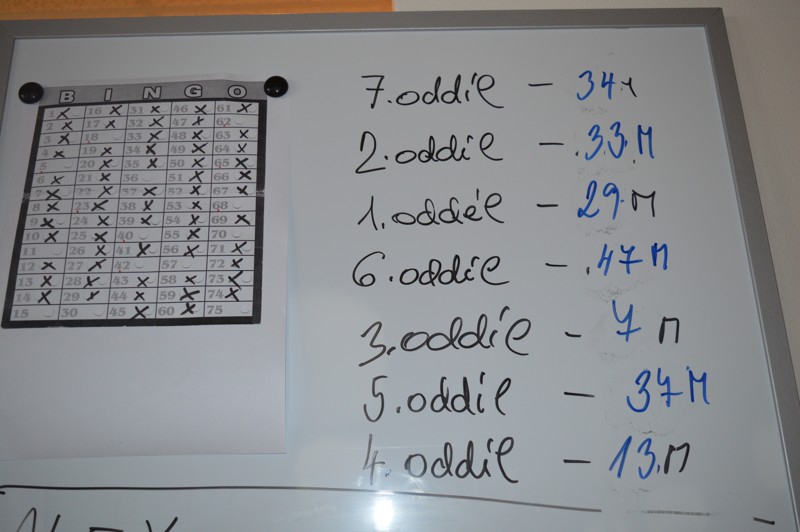 B I N G O
1 16 31 46 61
2 17 32 47 62
3 18 33 48 63
4 19 34 49 64
5 20 35 50 65
6 21 36 51 66
7 22 37 52 67
8 23 38 53 68
9 24 39 54 69
10 25 40 55 70
11 26 41 56 71
12 27 42 57 72
13 28 43 58 73
14 29 44 59 74
15 30 45 60 75
7. oddíl – 34
2. oddíl – 33. M
1. oddíl – 29 M
6. oddíl – 47 M
3. oddíl – 7 M
5. oddíl – 37 M
4. oddíl – 13. M